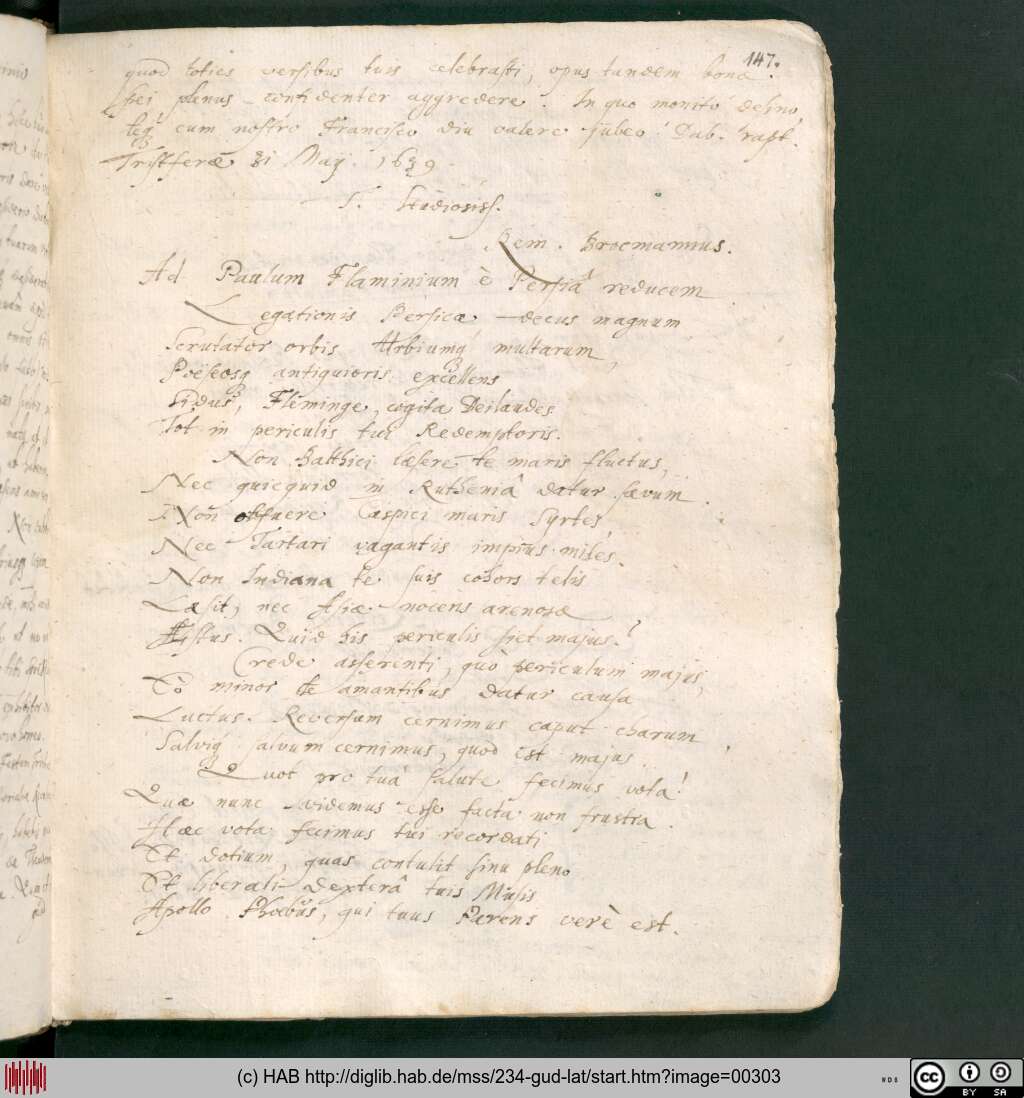 147.
quod toties versibus tuis celebrasti, opus tandem bonæ
spei plenus confidenter aggredere. In quo monito desino,
teq; cum nostro Francisco diu valere jubeo. Dab. rapt.
31 Maij. 1639
T. studiosiss.
Rein. Brocmannus.
Ad Paulum Flaminium è Persiâ reducem
Legationis Persicæ decus magnum
Scrutator orbis Urbiumq; multarum,
Poëseosq; antiquioris excellens
Sidus, Fleminge, cogita Dei laudes
Tot in periculis tui Redemptoris.
Non Balthici læsere te maris fluctus,
Nec quicquid in Rutheniâ datur sævum.
Non obfuere Caspici maris Syrtes,
Nec Tartari vagantis impius miles.
Non Indiana te suis cohors telis
Læsit, nec Asiæ nocens arenosæ
Æstus. Quid his periculis siet majus?
Crede asserenti, quò periculum majus,
Eò minor te amantibus datur causa
Luctus. Reversum cernimus caput charum
Salviq; salvum cernimus, quod est majus.
Quot pro tuâ salute fecimus vota!
Quæ nunc videmus esse facta non frustra.
Hæc vota fecimus tui recordati
Et dotium, quas contulit sinu pleno
Et liberali dexterâ tuis Musis
Apollo Phoebus, qui tuus Parens verè est.
(c) HAB http://diglib.hab.de/mss/234-gud-lat/start.htm?image=00303
cc BY SA